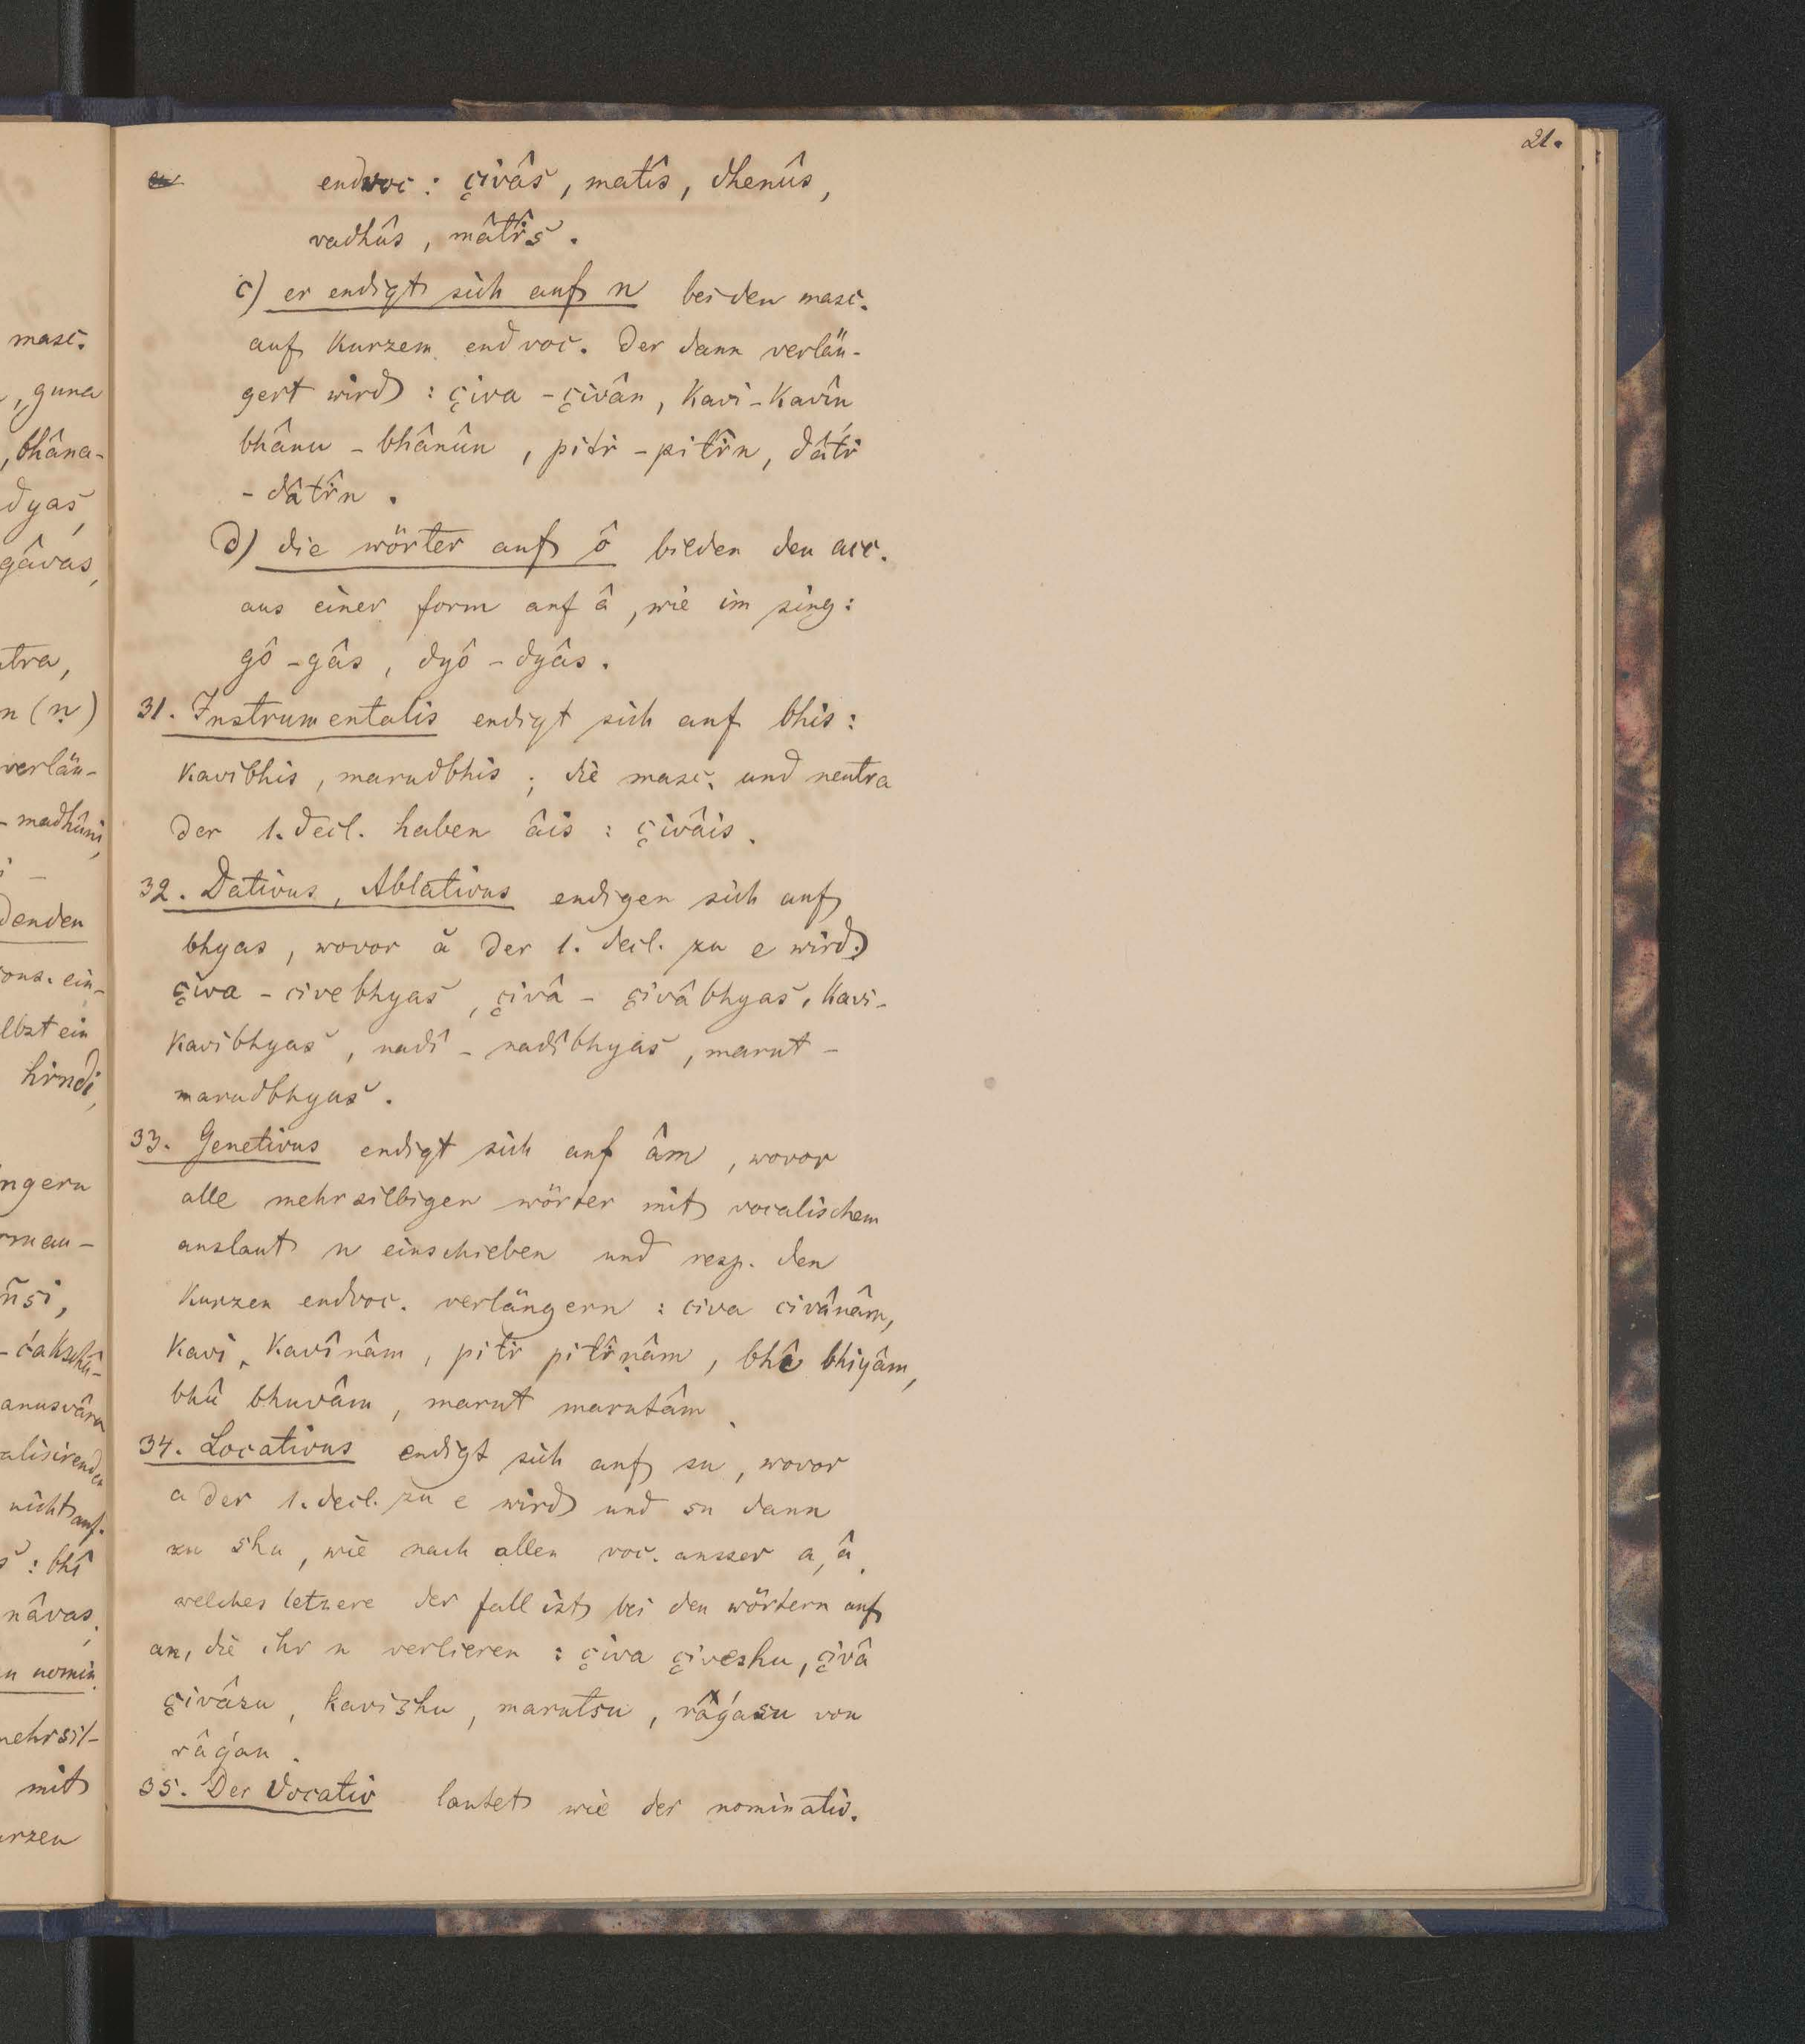 21.
endvoc : çivâs, matîs, dhenûs,
vadhûs, mâtr̂s.
c) er endigt sich auf n bei den masc.
auf kurzem endvoc. der dann verlän-
gert wird : çiva - çivân, kavi - kavîn
bhânu - bhânûn, pitr - pitr̂n, dâtr
- dâtr̂n.
d) die wörter auf ô bilden den acc.
aus einer form auf â, wie im sing:
gô - gâs, dyô - dyâs.
31. Instrumentalis endigt sich auf bhis :
kavibhis, marudbhis ; die masc. und neutra
der 1. decl. haben âis : çivâis.
32. Dativus, Ablativus endigen sich auf
bhyas, wovor ă der 1. decl. zu e wird
çiva - civebhyas, çivâ - çivâbhyas, kavi-
kavibhyas, nadî - nadîbhyas, marut -
marudbhyas.
33. Genetivus endigt sich auf âm, wovor
alle mehrsilbigen wörter mit vocalischem
auslaut n einschieben und resp. den
kurzen endvoc. verlängern : civa civânâm,
kavi, kavînâm, pitr pitr̂ṇâm, bhî bhiyâm,
bhû bhuvâm, marut marutâm.
34. Locativus endigt sich auf su, wovor
a der 1. decl. zu e wird und su dann
zu shu, wie nach allen voc. ausser a, â,
welches letzere der fall ist bei den wörtern auf
an, die ihr n verlieren : çiva çiveshu, çivâ
çivâsu, kavishu, marutsu, râǵasu von
râǵan.
35. Der Vocativ lautet wie der nominativ.
masc.
, guna
, bhâna-
dyas,
gâvas,
tra,
n (ṇ)
verlän-
- madhûni,
denden
ons. ein-
lbst ein
hrndi,
ngern
man-
ñsi,
anusvâra
nicht auf.
: bhî
nâvas,
nomin.
mehrsil-
mit
urzen